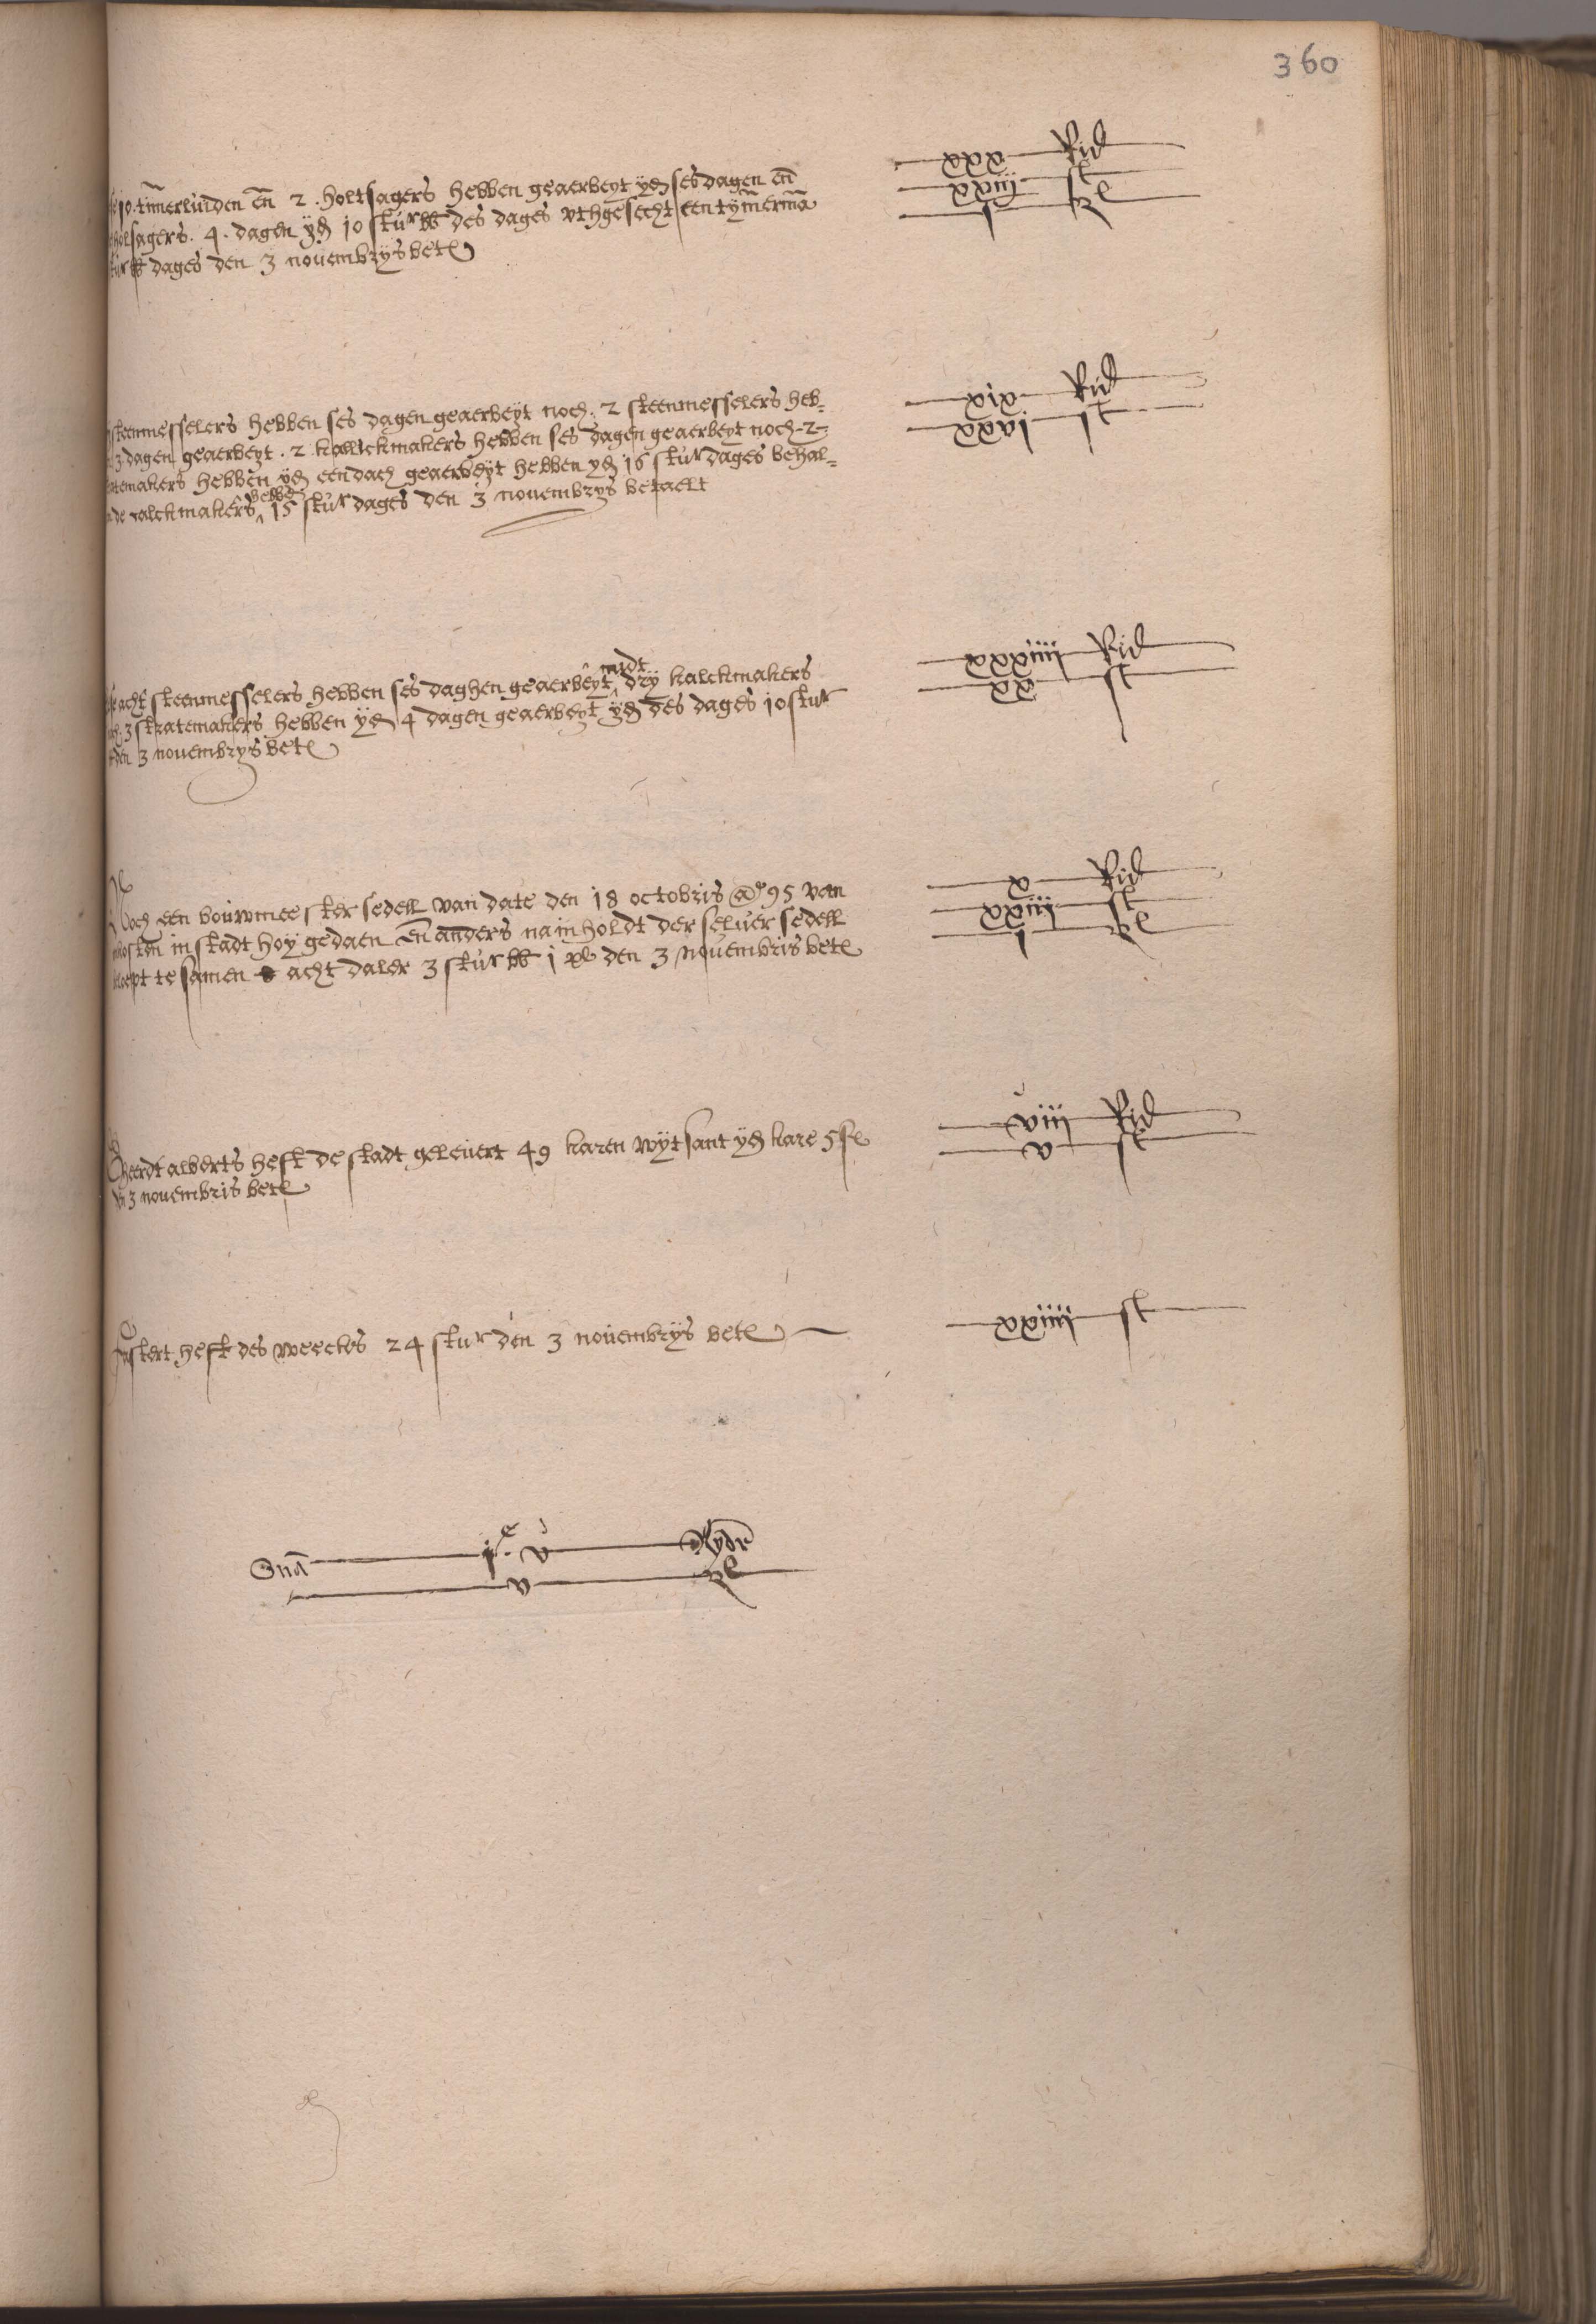 360
10 tim̄erluden en̄ 2. holtsagers hebben geaerbeyt yd̄ ses dagen en̄
holsagers. 4. dagen yd̄ 10 stur bb des dages vthgesecht een tym̄erma̅
stur bb dages den 3 nouembrys bet
xxx Rid
xxiij st
j pl
steenmesselers hebben ses dagen geaerbeyt noch. 2 steenmesselers heb-
3 dagen geaerbeyt. 2. kallickmakers hebben ses dagen geaerbeyt noch-2-
atemakers hebben yd̄ een dach geaerbeyt hebben yd̄ 16 stur dages behal-
de calckmakers hebben 15 stur dages den 3 nouembrys betaelt
xix Rid
xxvj st
acht steenmesselers hebben ses daghen geaerbeyt midt dry kalckmakers
3 stratemakers hebben yd̄ 4 dagen geaerbeyt yd̄ des dages 10 stur
den 3 nouembrys bet
xxxiiij Rid
xx st
Noch een bouwmeester sedell van date den 18 octobris ao 95 van
kosten in stadt hoy gedaen en̄ anders na inholdt der seluer sedell
loept te samen acht daler 3 stur bb 1 pl den 3 nouembris bet
x Rid
xxiij st
j pl
Gheerdt alberts heft de stadt geleuert 49 karen wyt sant yd̄ kare 5 st
3 nouembris bet
viij Rid
v st
Justert heft des weeckes 24 stur den 3 nouembrys bet
xxiiij st
Sma̅ jc v Ryder
v pl